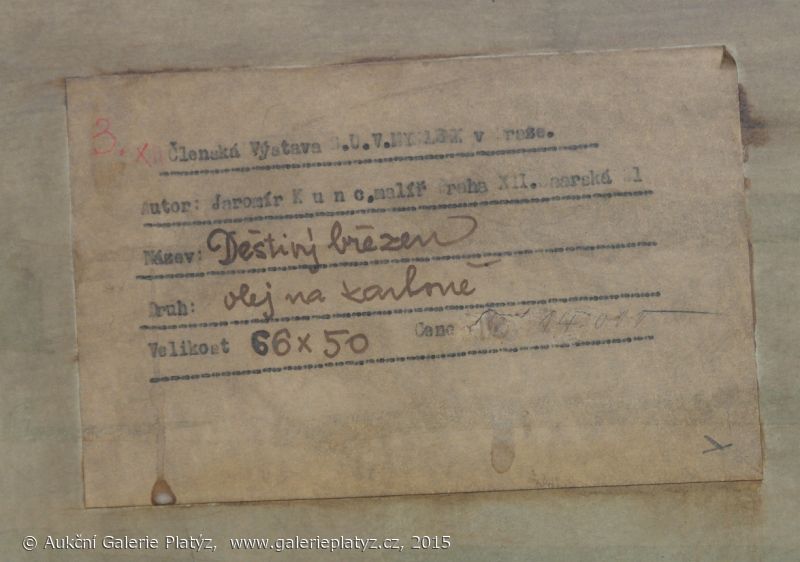 3. x
Členská Výstava S.U.V.MYSLBEK v Praze.
Autor: Jaromír K u n c.malíř Praha XII.
Název: Deštivý březen
Druh: olej na kartoně
Velikost 66 x 50 Cena
© Aukční Galerie Platýz, www.galerieplatyz.cz, 2015